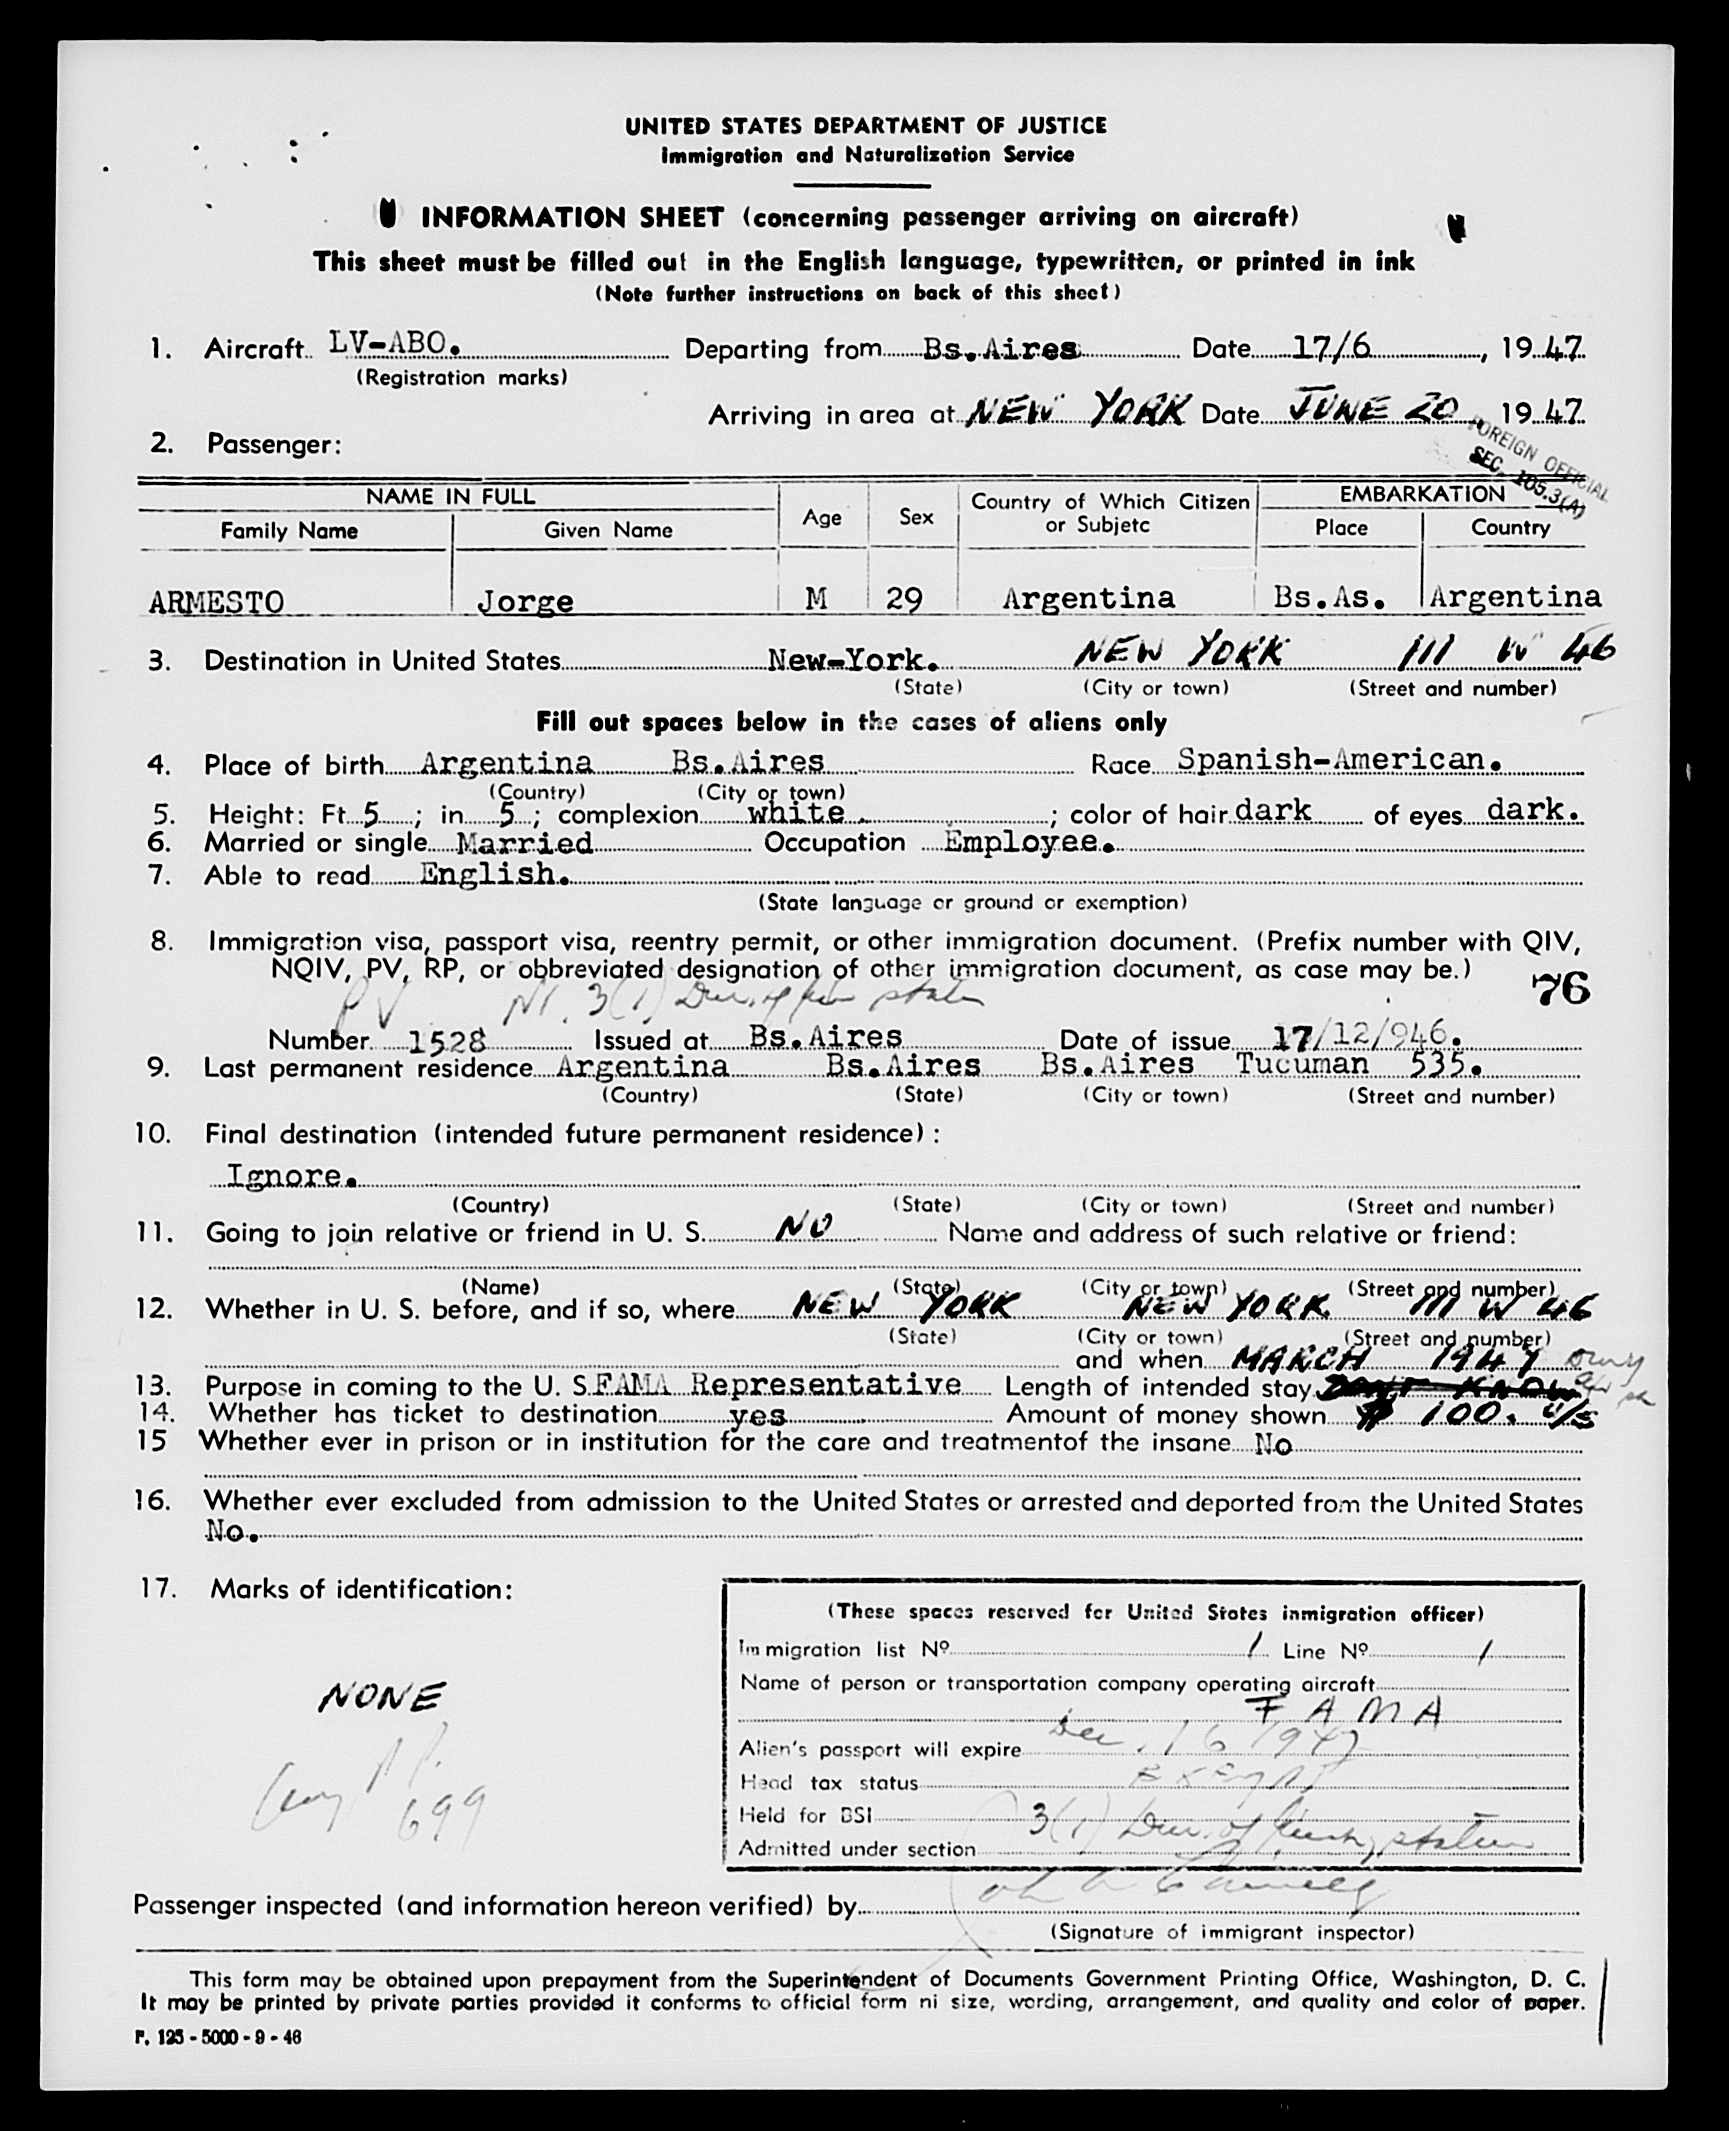 UNITED STATES DEPARTMENT OF JUSTICE
Immigration and Naturalization Service
INFORMATION SHEET (concerning passenger arriving on aircraft)
This sheet must be filled out in the English language, typewritten, or printed in ink
(Note further instructions on back of this sheet)
1. Aircraft LV-ABO. Departing from Bs.Aires Date 17/6, 1947
(Registration marks)
Arriving in area at NEW YORK Date JUNE 20, 1947
2. Passenger:
FOREIGN OFFICIAL
SEC. 105.3(A)
NAME IN FULL Age Sex Country of Which Citizen or Subjetc EMBARKATION
Family Name Given Name Place Country
ARMESTO Jorge M 29 Argentina Bs.As. Argentina
3. Destination in United States New-York. NEW YORK 111 W 46
(State) (City or town) (Street and number)
Fill out spaces below in the cases of aliens only
4. Place of birth Argentina Bs.Aires Race Spanish-American.
(Country) (City or town)
5. Height: Ft 5; in 5; complexion white.; color of hair dark of eyes dark.
6. Married or single Married Occupation Employee.
7. Able to read English.
(State language or ground or exemption)
8. Immigration visa, passport visa, reentry permit, or other immigration document. (Prefix number with QIV,
NQIV, PV, RP, or obbreviated designation of other immigration document, as case may be.) 76
PV 3(1)
Number 1528 Issued at Bs.Aires Date of issue 17/12/946.
9. Last permanent residence Argentina Bs.Aires Bs.Aires Tucuman 535.
(Country) (State) (City or town) (Street and number)
10. Final destination (intended future permanent residence):
Ignore.
(Country) (State) (City or town) (Street and number)
11. Going to join relative or friend in U. S. NO Name and address of such relative or friend:
(Name) (State) (City or town) (Street and number)
12. Whether in U. S. before, and if so, where NEW YORK NEW YORK. 111 W 46
(State) (City or town) (Street and number)
and when MARCH 1947
13. Purpose in coming to the U. S. FAMA Representative Length of intended stay DON'T KNOW
14. Whether has ticket to destination yes Amount of money shown $ 100. u/s
15 Whether ever in prison or in institution for the care and treatmentof the insane No
16. Whether ever excluded from admission to the United States or arrested and deported from the United States
No.
17. Marks of identification:
NONE
699
(These spaces reserved for United States inmigration officer)
Immigration list Nº 1 Line Nº 1
Name of person or transportation company operating aircraft
FAMA
Alien's passport will expire Dec. 16 1947
Head tax status Exempt
Held for BSI
Admitted under section 3(1)
Passenger inspected (and information hereon verified) by
(Signature of immigrant inspector)
This form may be obtained upon prepayment from the Superintendent of Documents Government Printing Office, Washington, D. C.
It may be printed by private parties provided it conforms to official form ni size, wording, arrangement, and quality and color of paper.
F. 125 - 5000 - 9 - 46